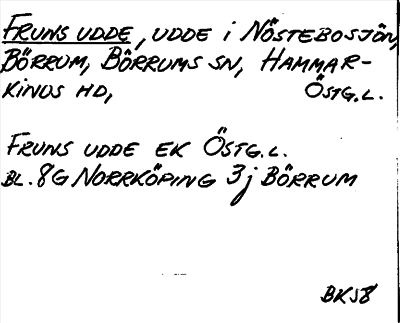 FRUNS UDDE, UDDE i NÖSTEBOSJÖN,
BÖRRUM, BÖRRUMS SN, HAMMAR-
KINDS HD, ÖSTG.L.
FRUNS UDDE EK ÖSTG.L.
BL. 8G NORRKÖPING 3j BÖRRUM
BKS8